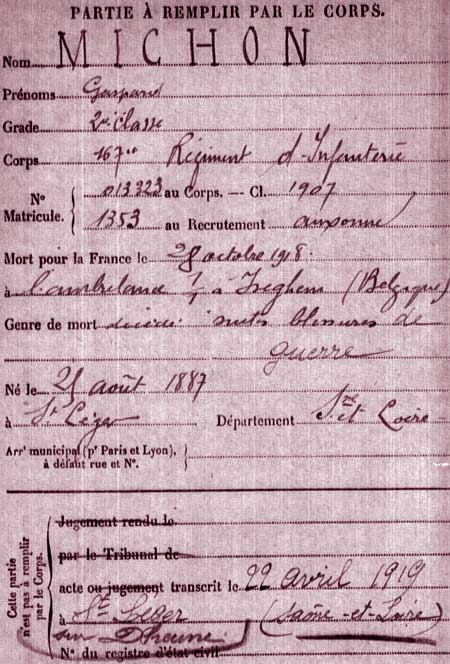 PARTIE À REMPLIR PAR LE CORPS.
Nom MICHON
Prénoms Gaspard
Grade 2me classe
Corps 167me Régiment d'Infanterie
No Matricule. 013323 au Corps. — Cl. 1907
1353 au Recrutement auxonne
Mort pour la France le 28 octobre 1918
à l'ambulance à Iseghem (Belgique)
Genre de mort décédé suites blessures de
guerre
Né le 21 août 1887
à St Léger Département S. et Loire
Arrt municipal (pr Paris et Lyon),
à défaut rue et No.
Cette partie n'est pas à remplir par le Corps.
Jugement rendu le
par le Tribunal de
acte ou jugement transcrit le 22 avril 1919
à St Léger (Saône-et-Loire)
sur Dheune
No du registre d'état civil